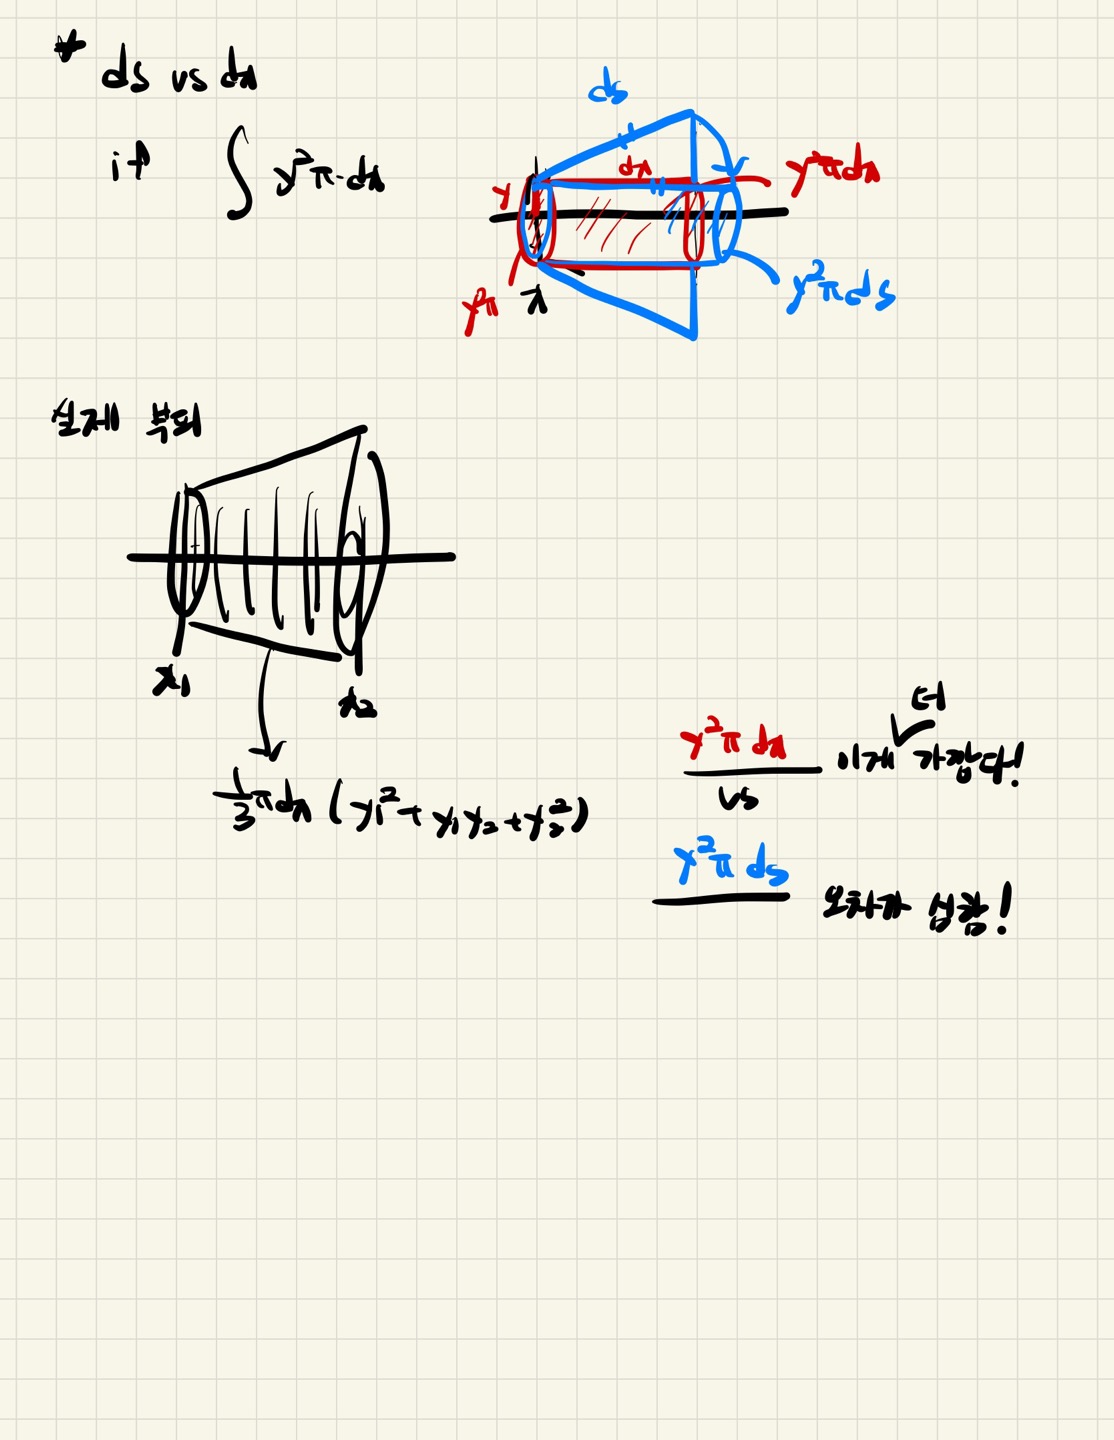 * ds vs dx
if ∫ y²π·dx
ds
dx
y
y²πdx
y²π
x
y²πds
실제 부피
x₁
x₂
1/3 πdx (y₁² + y₁y₂ + y₂²)
y²π dx 이게 더 가깝다!
vs
y²π ds 오차가 심함!